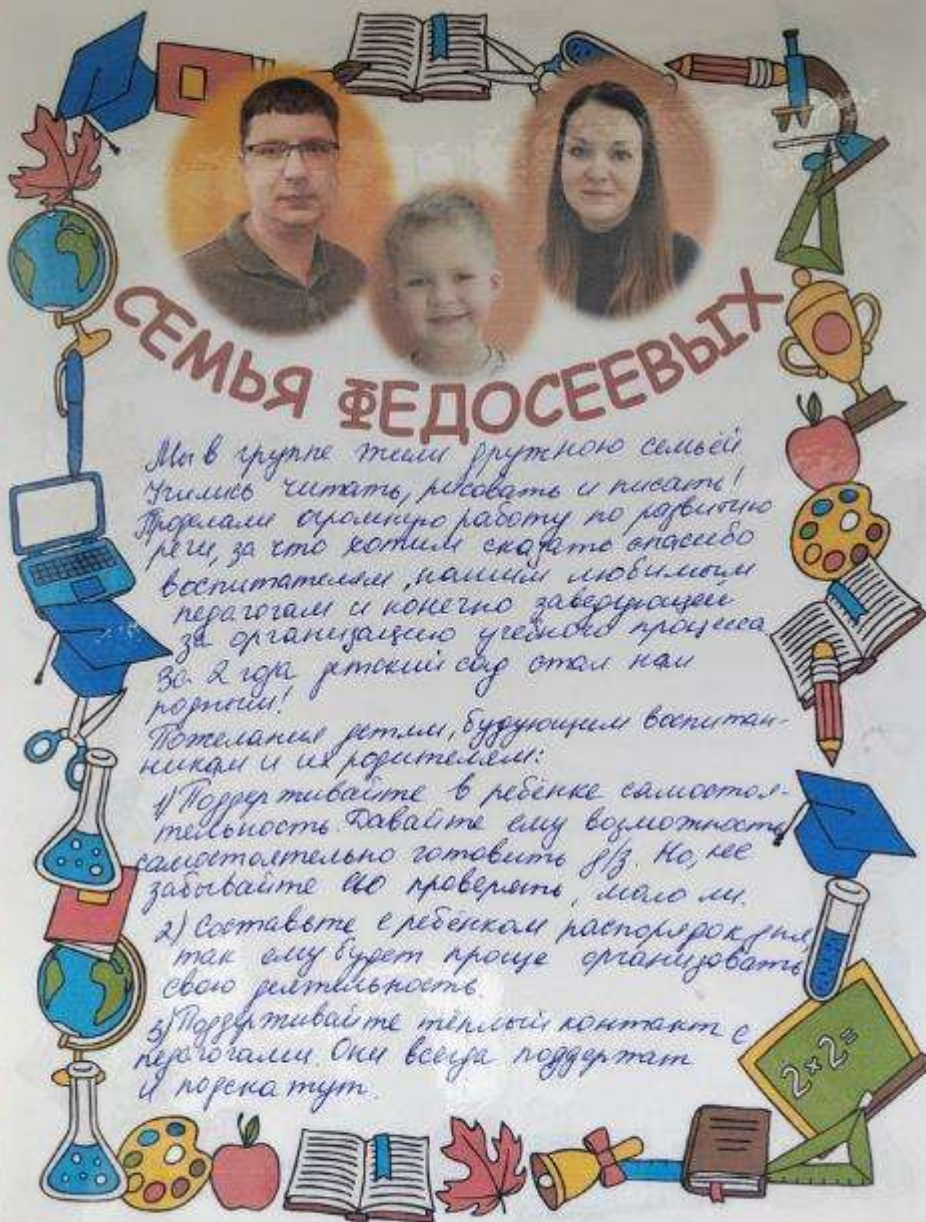 СЕМЬЯ ФЕДОСЕЕВЫХ
Мы в группе жили дружною семьёй
Учились читать, рисовать и писать!
Проделали огромную работу по развитию
речи, за что хотим сказать спасибо
воспитателям, нашим любимым
педагогам и конечно заведующей
за организацию учебного процесса.
За 2 года детский сад стал нам
родным!
Пожелания детям, будующим воспитан-
никам и их родителям:
1) Поддерживайте в ребёнке самостоя-
тельность. Давайте ему возможность
самостоятельно готовить д/з. Но, не
забывайте его проверять, мало ли.
2) Составьте с ребёнком распорядок дня
так ему будет проще организовать
свою деятельность.
3) Поддерживайте тёплый контакт с
педагогами. Они всегда поддержат
и подскажут.
2×2=